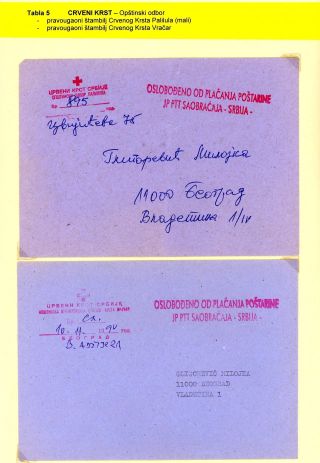 Tabla 5 CRVENI KRST – Opštinski odbor
- pravougaoni štambilj Crvenog Krsta Palilula (mali)
- pravougaoni štambilj Crvenog Krsta Vračar
ЦРВЕНИ КРСТ СРБИЈЕ
Бр. 895
OSLOBOĐENO OD PLAĆANJA POŠTARINE
JP PTT SAOBRAĆAJA - SRBIJA -
Глигоревић Милојка
11000 Београд
Владетина 1/IV
ЦРВЕНИ КРСТ СРБИЈЕ
Сл.
10. 11. 1994
БЕОГРАД
OSLOBOĐENO OD PLAĆANJA POŠTARINE
JP PTT SAOBRAĆAJA - SRBIJA -
MILOJKA
11000 BEOGRAD
VLADETINA 1